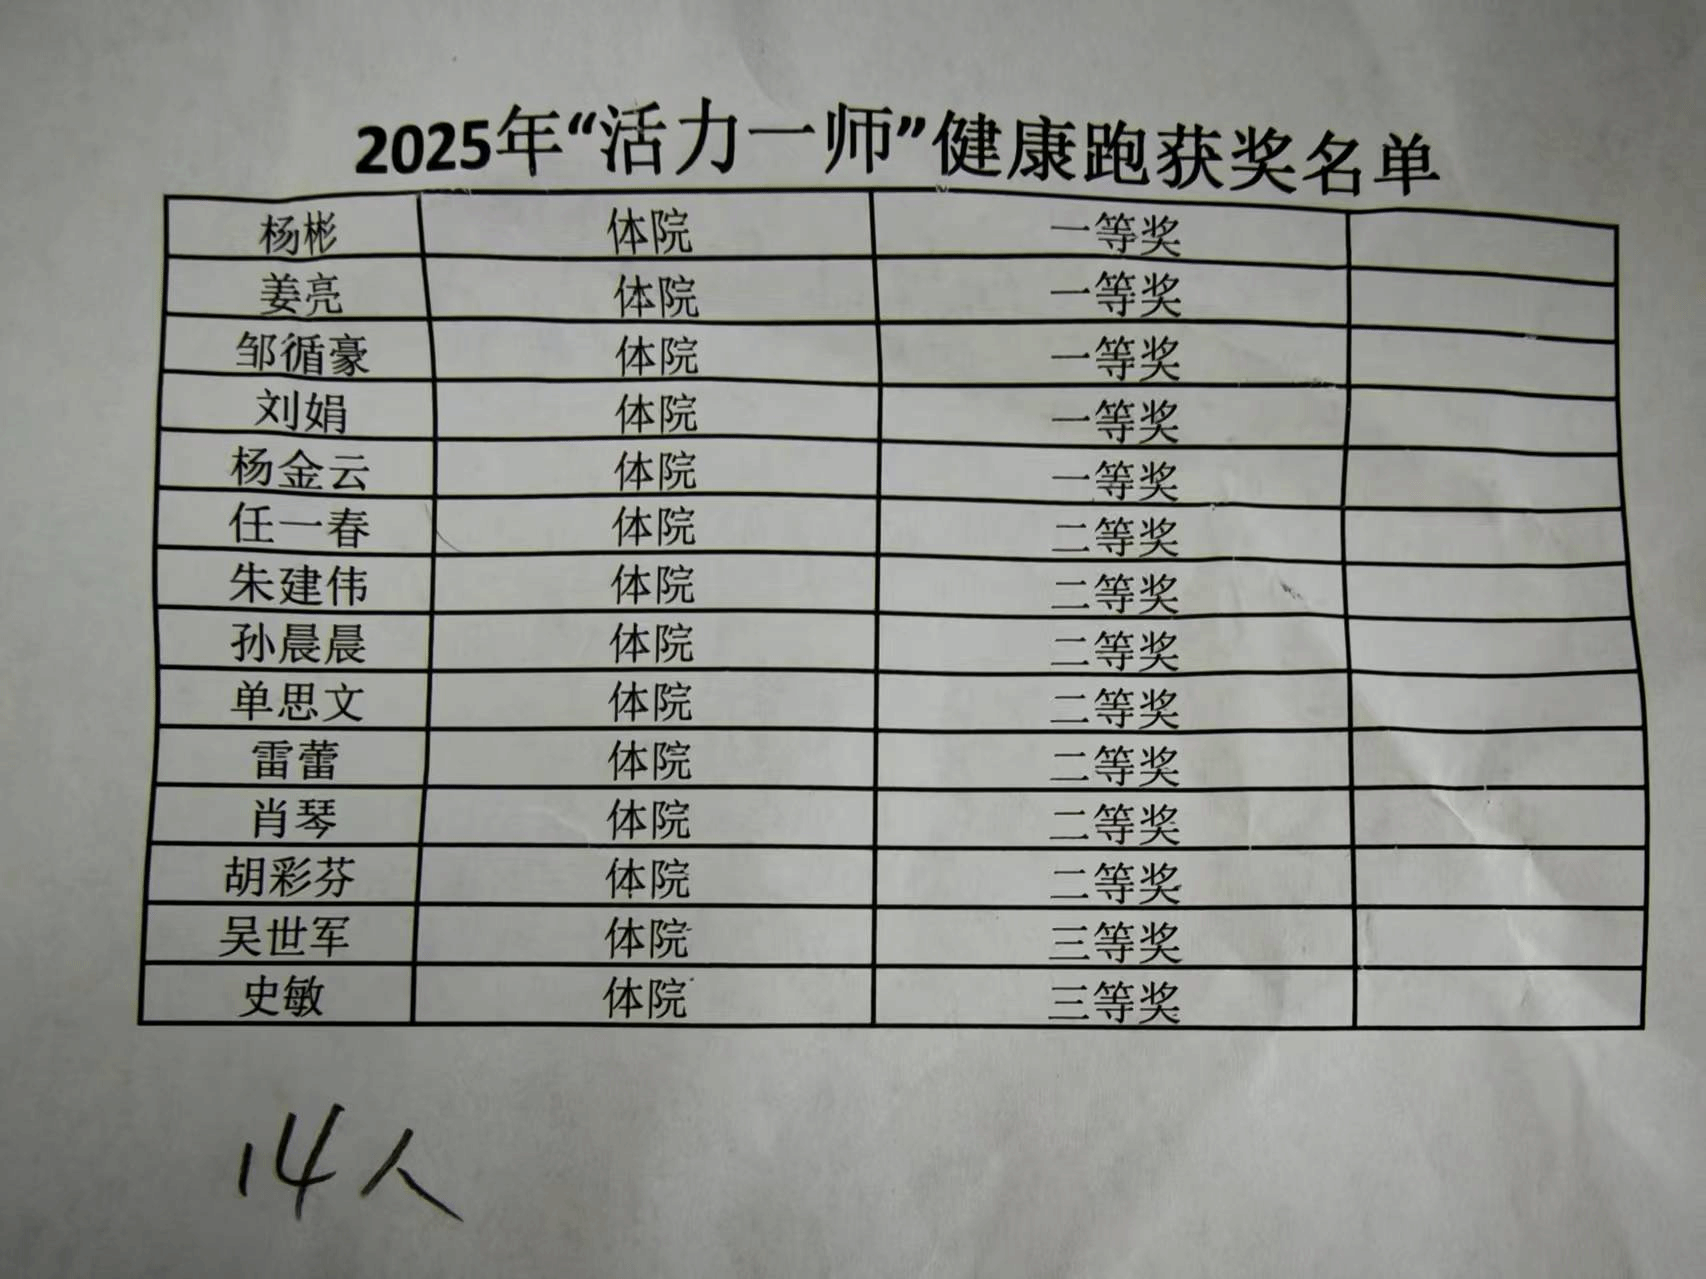 2025年“活力一师”健康跑获奖名单
杨彬 体院 一等奖
姜亮 体院 一等奖
邹循豪 体院 一等奖
刘娟 体院 一等奖
杨金云 体院 一等奖
任一春 体院 二等奖
朱建伟 体院 二等奖
孙晨晨 体院 二等奖
单思文 体院 二等奖
雷蕾 体院 二等奖
肖琴 体院 二等奖
胡彩芬 体院 二等奖
吴世军 体院 三等奖
史敏 体院 三等奖
14人